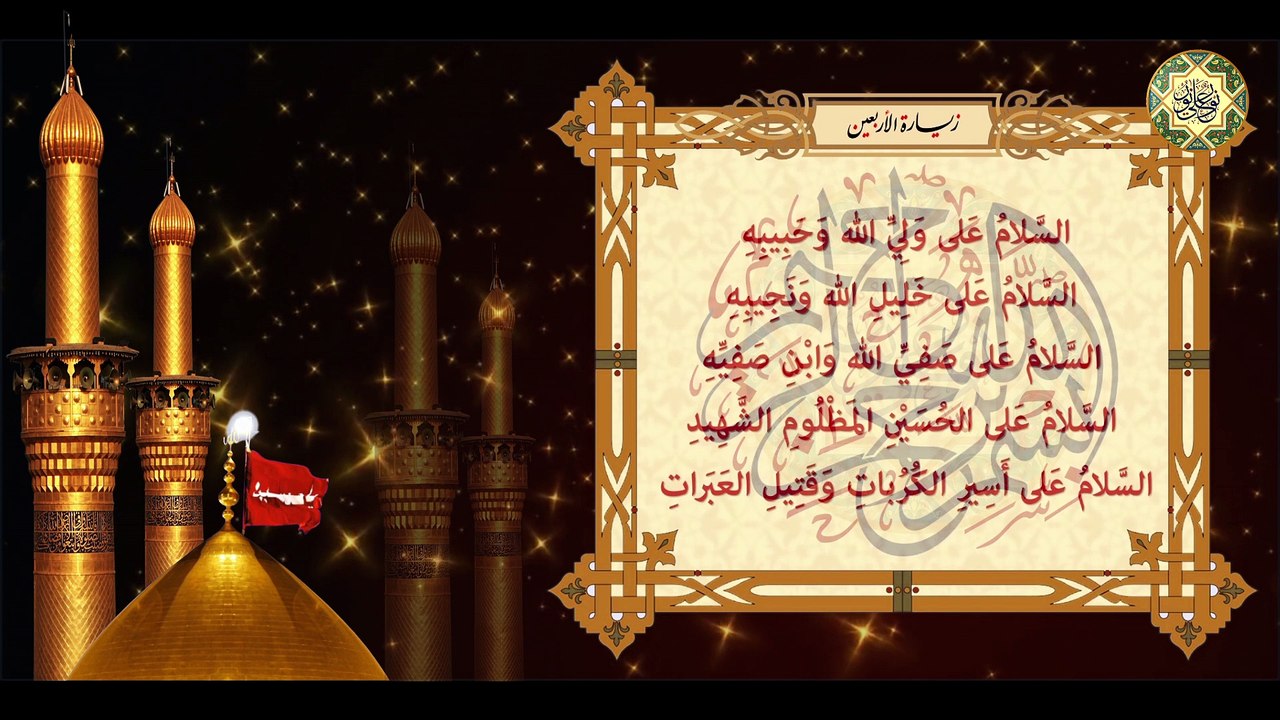 زيارة الأربعين
السَّلامُ عَلى وَلِيِّ الله وَحَبِيبِهِ
السَّلامُ عَلى خَلِيلِ الله وَنَجِيبِهِ
السَّلامُ عَلى صَفِيِّ الله وَابْنِ صَفِيِّهِ
السَّلامُ عَلى الحُسَيْنِ المَظْلُومِ الشَّهِيدِ
السَّلامُ عَلى أَسِيرِ الكُرُباتِ وَقَتِيلِ العَبَراتِ